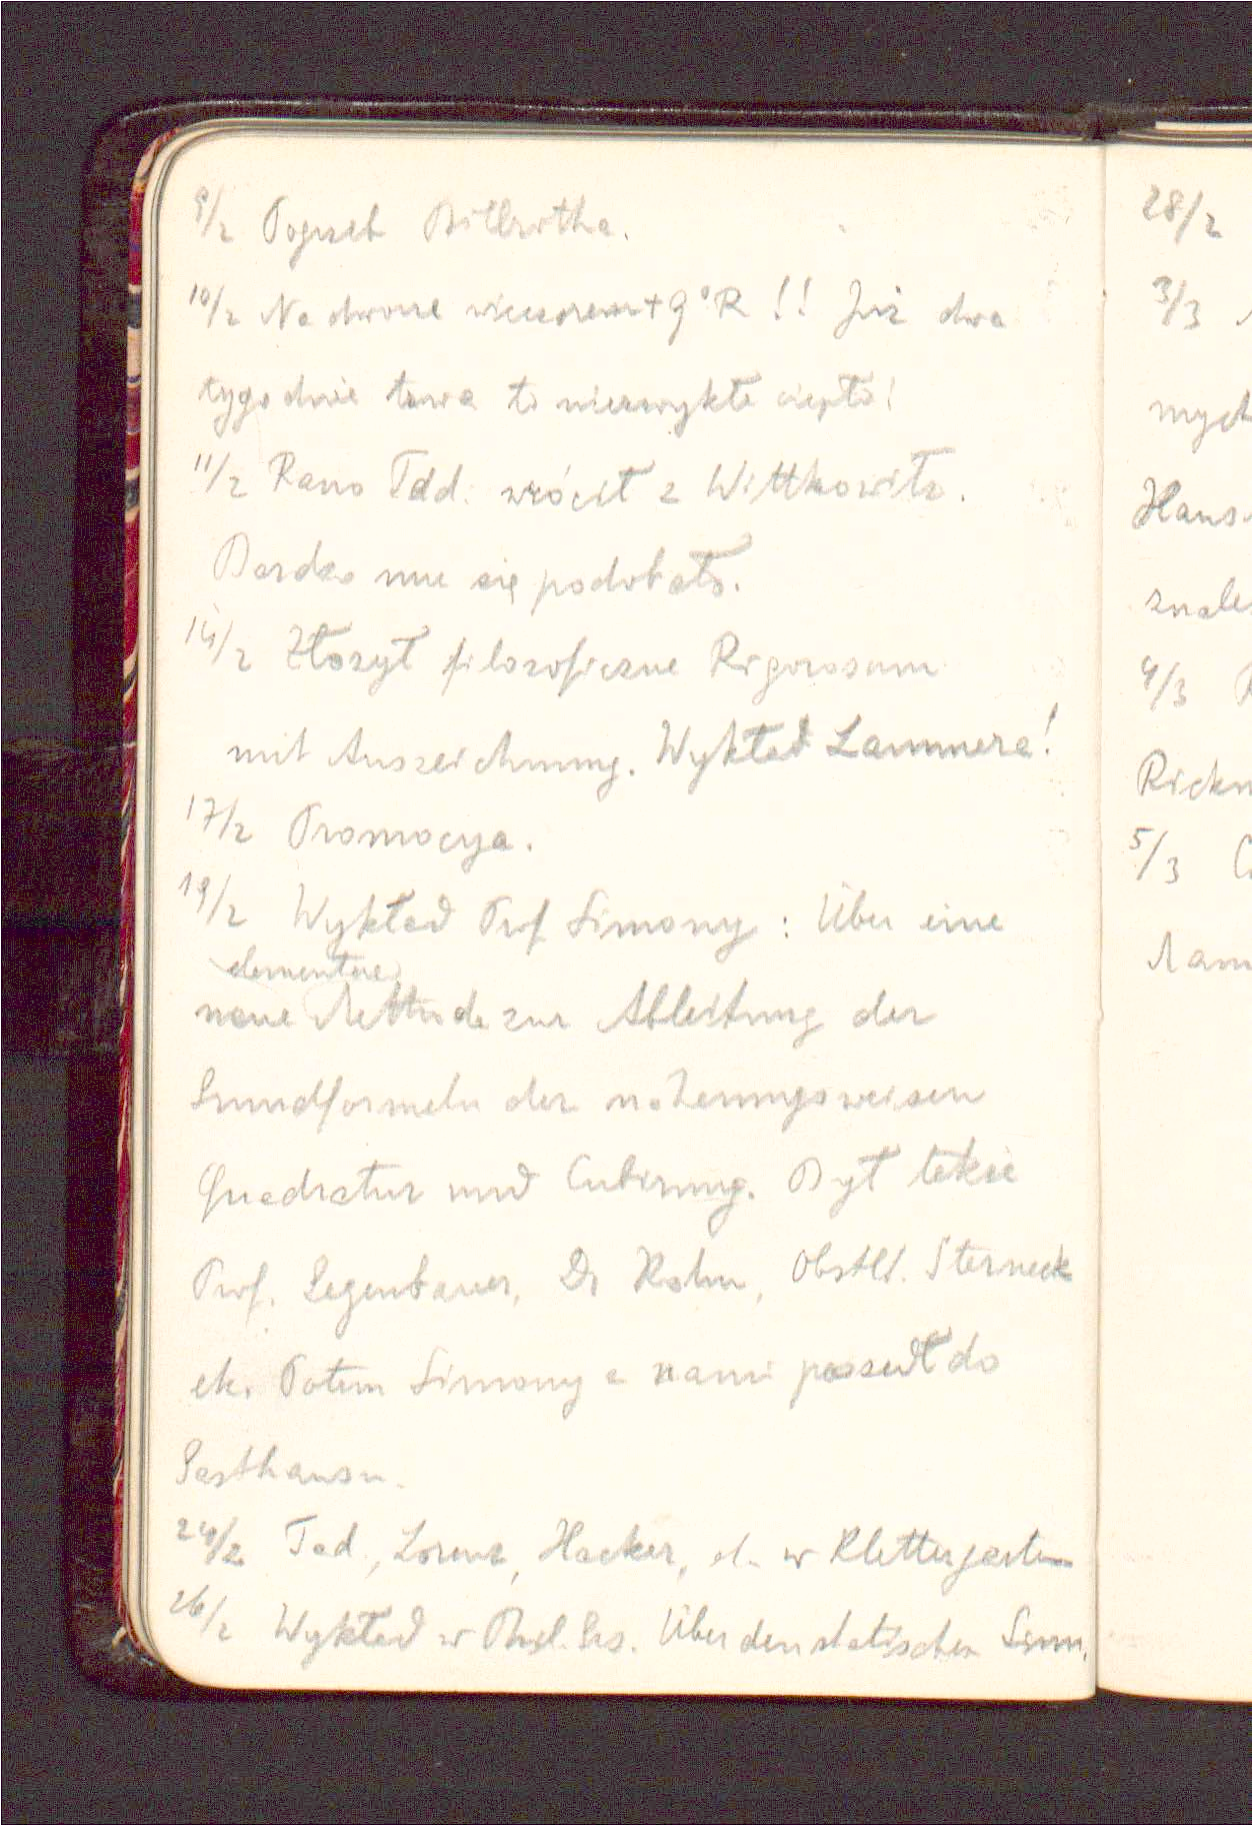 9/2 Pogrzeb Billrotha.
10/2 Na dworze wieczorem +9°R !! Już dwa
tygodnie trwa to niezwykłe ciepło!
11/2 Rano Tad. wrócił z Wittkowitz.
Bardzo mu się podobało.
14/2 Złożył filozoficzne Rigorosum
mit Auszeichnung. Wykład Lammera!
17/2 Promocya.
19/2 Wykład Prof Simony: Über eine
elementare
neue Methode zur Ableitung der
Grundformeln der näherungsweisen
Quadratur und Cubirung. Był także
Prof. Gegenbauer, Dr Kohn, Obstlt. Sterneck
etc. Potem Simony z nami poszedł do
Gasthausu.
24/2 Tad., Lorenz, Hacker, etc. w Klettergarten
26/2 Wykład w Phil. Ges. Über den statischen Sinn.
28/2
3/3
mych
Hans
znale
4/3
Rickm
5/3